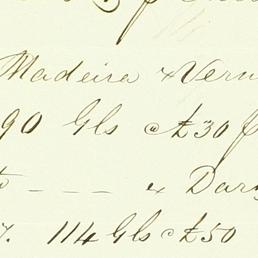 Madeira & Vern
90 Gls @ £30 p
- - - - & Dar
7. 114 Gls @ £50